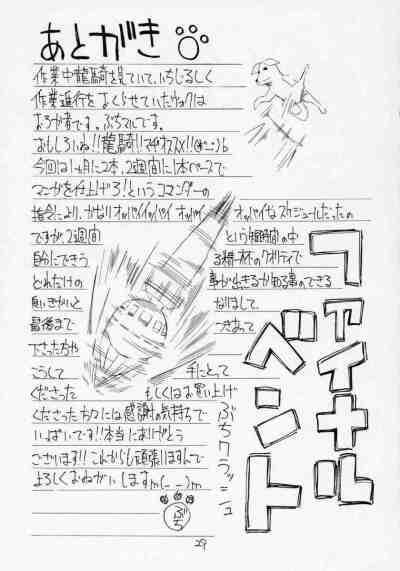 あとがき
作業中龍騎を見ていて、いちじるしく
作業進行をおくらせていたウォクは
おろか者です。ぶちマルです。
おもしろいね!!龍騎!!
今回は1ヵ月に2本、2週間に1本ペースで
マンガを仕上げろ!というコマンダーの
指令により、かなりオッパイイッパイ オッパイ オッパイなスケジュールだったの
ですが、2週間 という短時間の中
自分にできうる精一杯のクオリティで
どれだけの事が出きるか知る事のできる
良いきかいと なりまして、
最後まで つきあって
下さった方や
こうして 手にとって
くださった もしくはお買い上げ
くださった方々には感謝の気持ちで
いっぱいです!!本当にありがとう
ございます!! これからも頑張りますんで
よろしくおねがいしますm(_ _)m
ぶち
ファイナル
ベント
ぶちクラッシュ
29